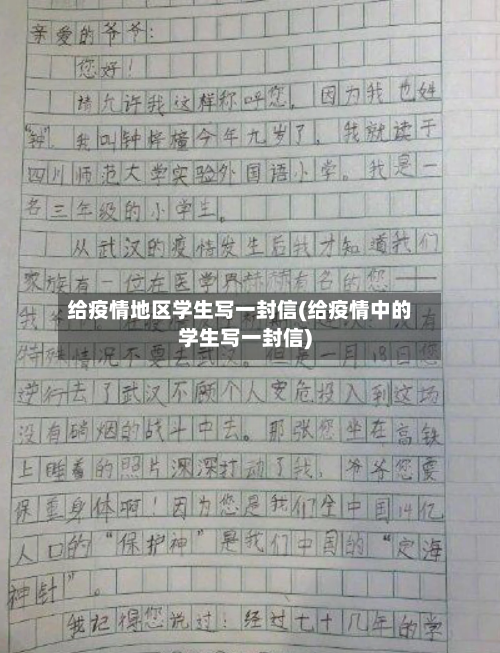 亲爱的爷爷:
您好!
请允许我这样称呼您,因为我也姓
"钟",我叫钟梓橦今年九岁了,我就读于
四川师范大学实验外国语小学。我是一
名三年级的小学生。
从武汉的疫情发生后我才知道我们
家族有一位在医学界赫赫有名的您——
给疫情地区学生写一封信(给疫情中的
学生写一封信)
特殊情况不要去武汉。但是一月18日您
逆行去了武汉不顾个人安危投入到这场
没有硝烟的战斗中去。那张您坐在高铁
上睡着的照片深深打动了我,爷爷您要
保重身体啊!因为您是我们全中国14亿
人口的“保护神”是我们中国的“定海
神针”。
我记得您说过:经过七十几年的学